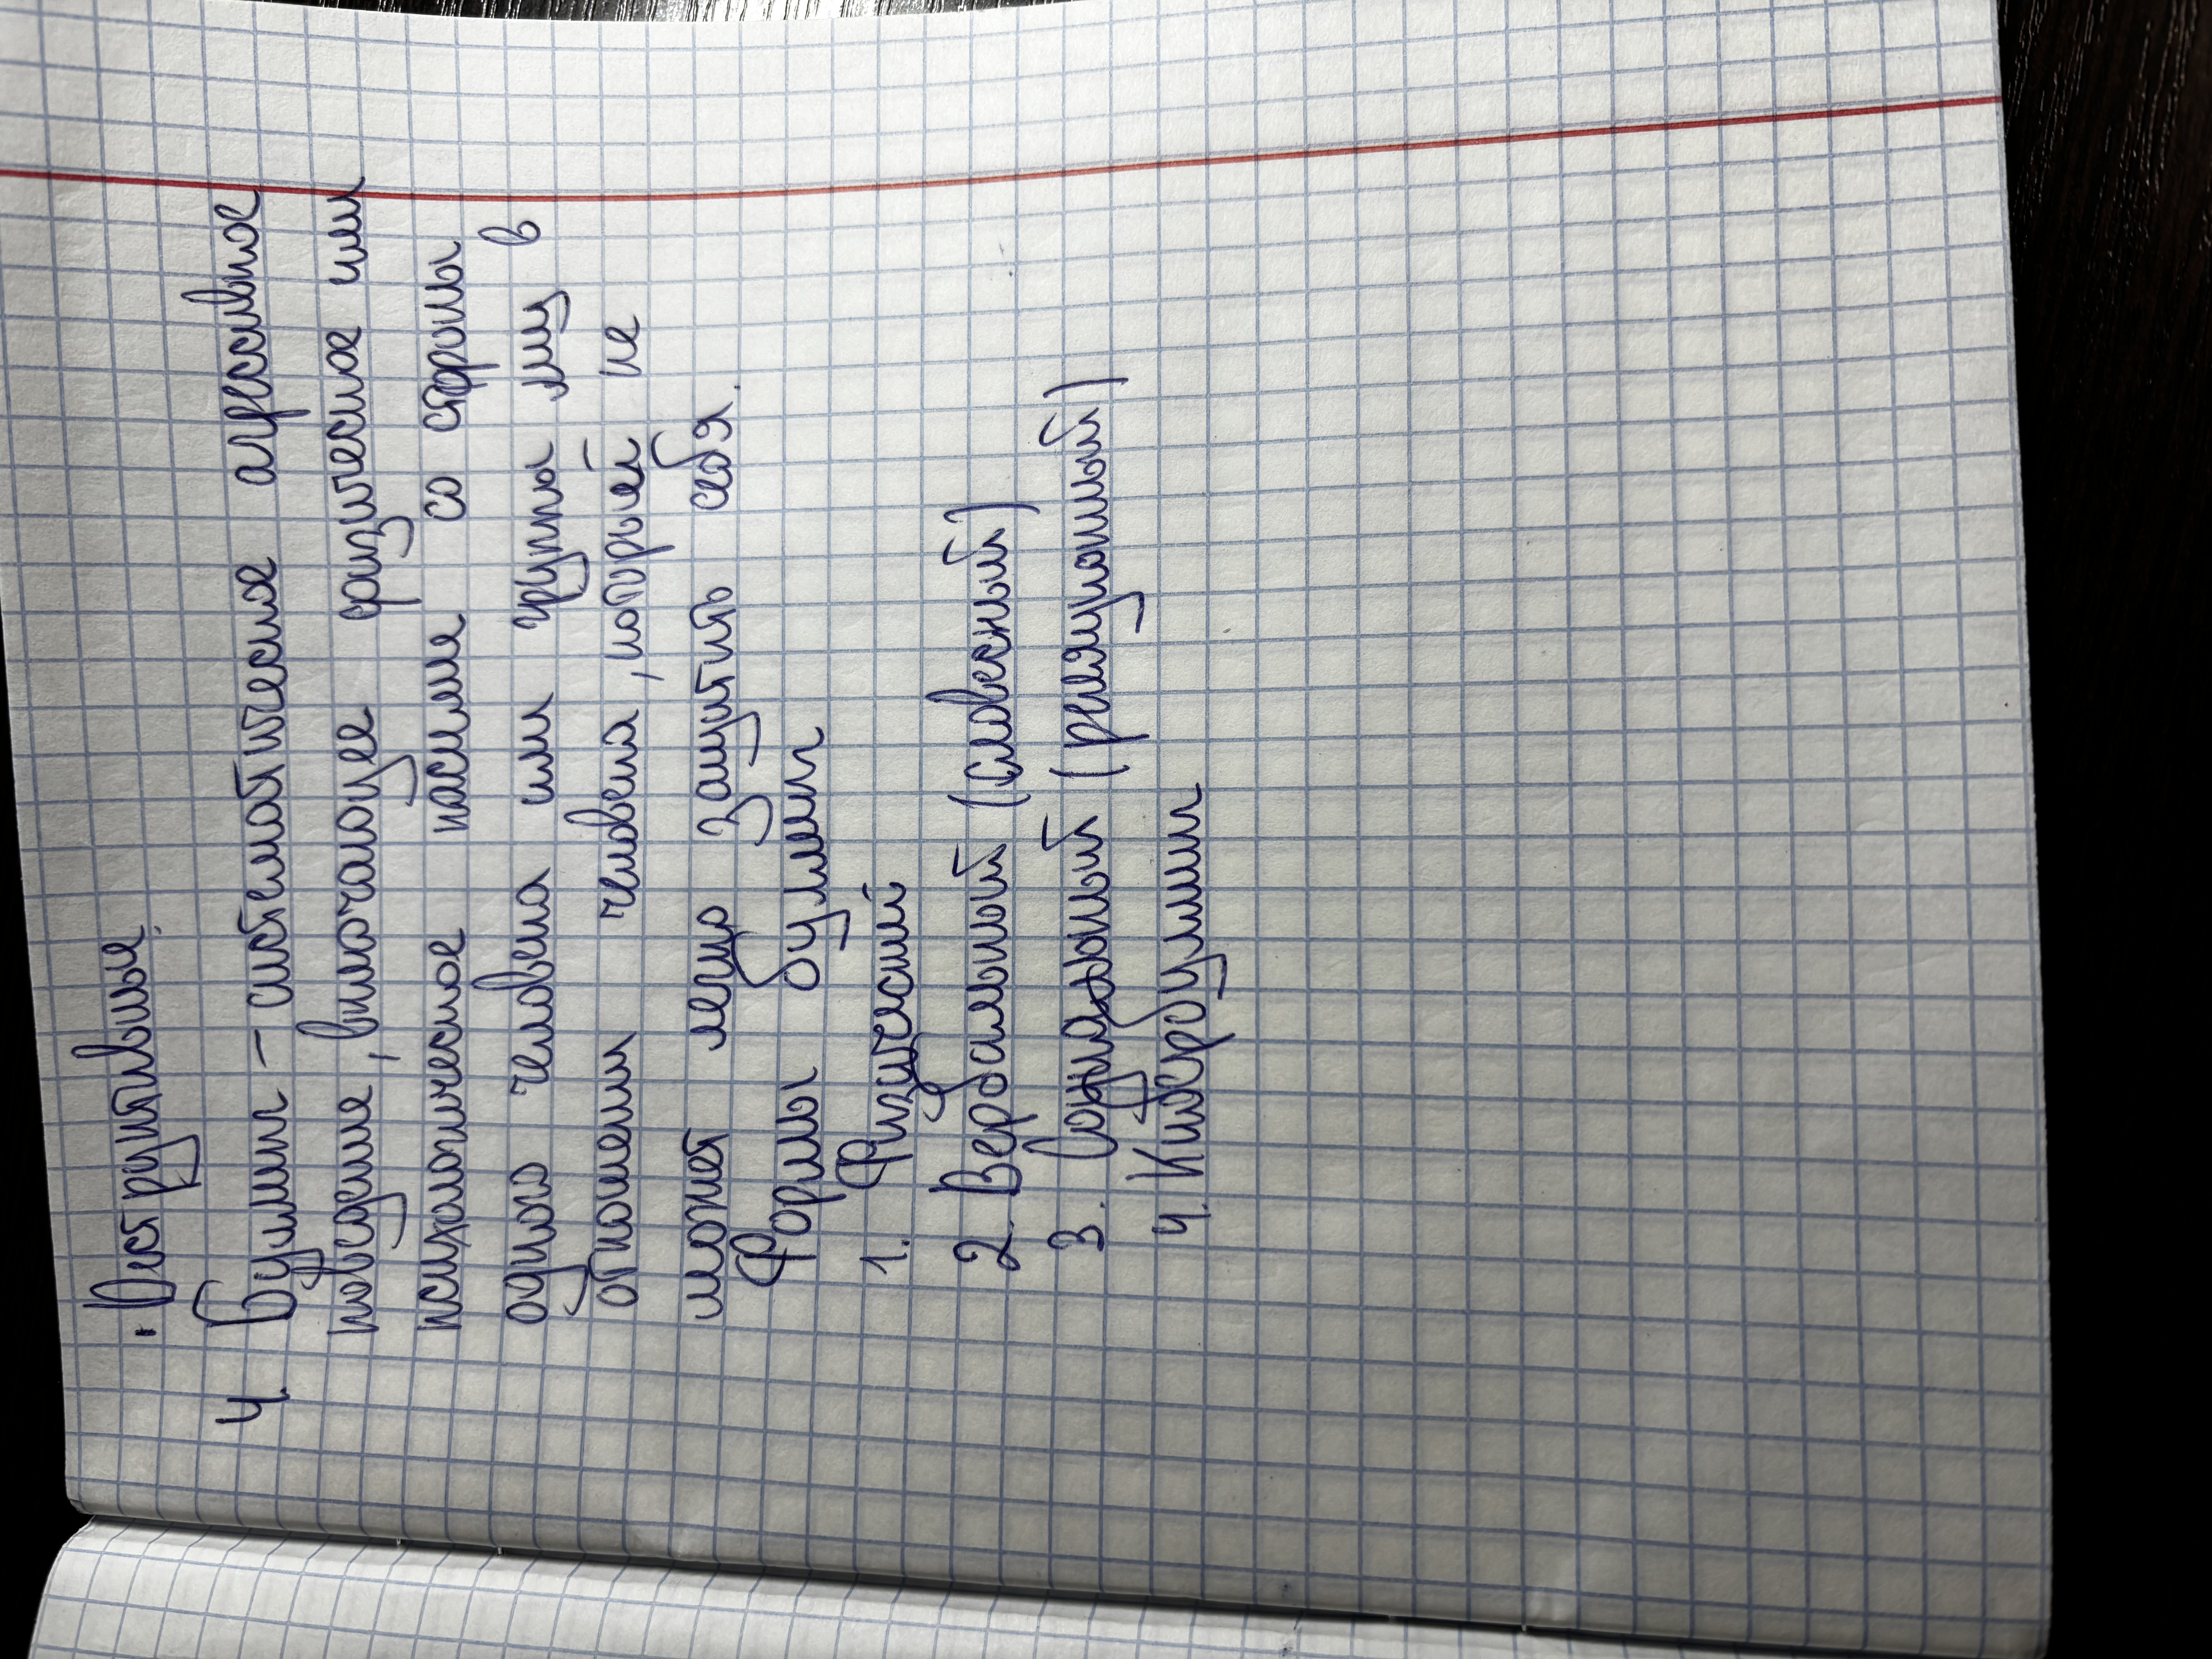 · Деструктивные.
4. Буллинг – систематическое агрессивное
поведение, включающее физическое или
психологическое насилие со стороны
одного человека или группы лиц в
отношении человека, которые не
может легко защитить себя.
Формы буллинг
1. Физический
2. Вербальный (словесный)
3. Социальный (реляционный)
4. Кибербуллинг